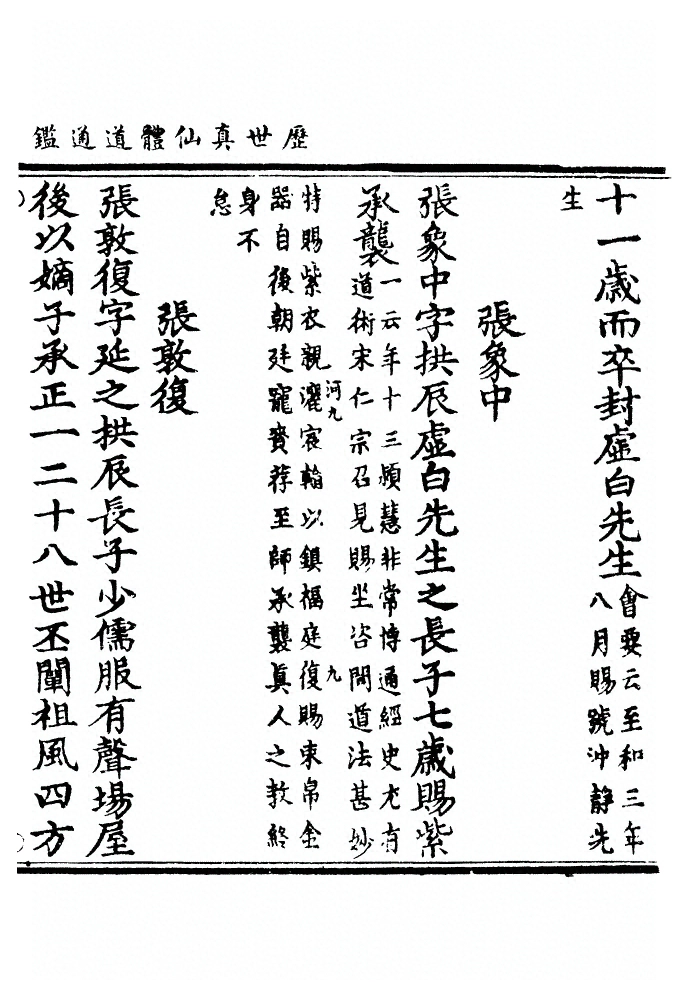 歷世真仙體道通鑑
十一歲而卒封虛白先生會要云至和三年
八月賜號沖靜先
生
張象中
張象中字拱辰虛白先生之長子七歲賜紫
承襲一云年十三穎慧非常博通經史尤有
道術宋仁宗召見賜坐咨問道法甚妙
河九
九
特賜紫衣親灑宸翰以鎮福庭復賜束帛金
器自後朝廷寵賚荐至師承襲真人之教終
身不
怠
張敦復
張敦復字延之拱辰長子少儒服有聲場屋
後以嫡子承正一二十八世丕闡祖風四方